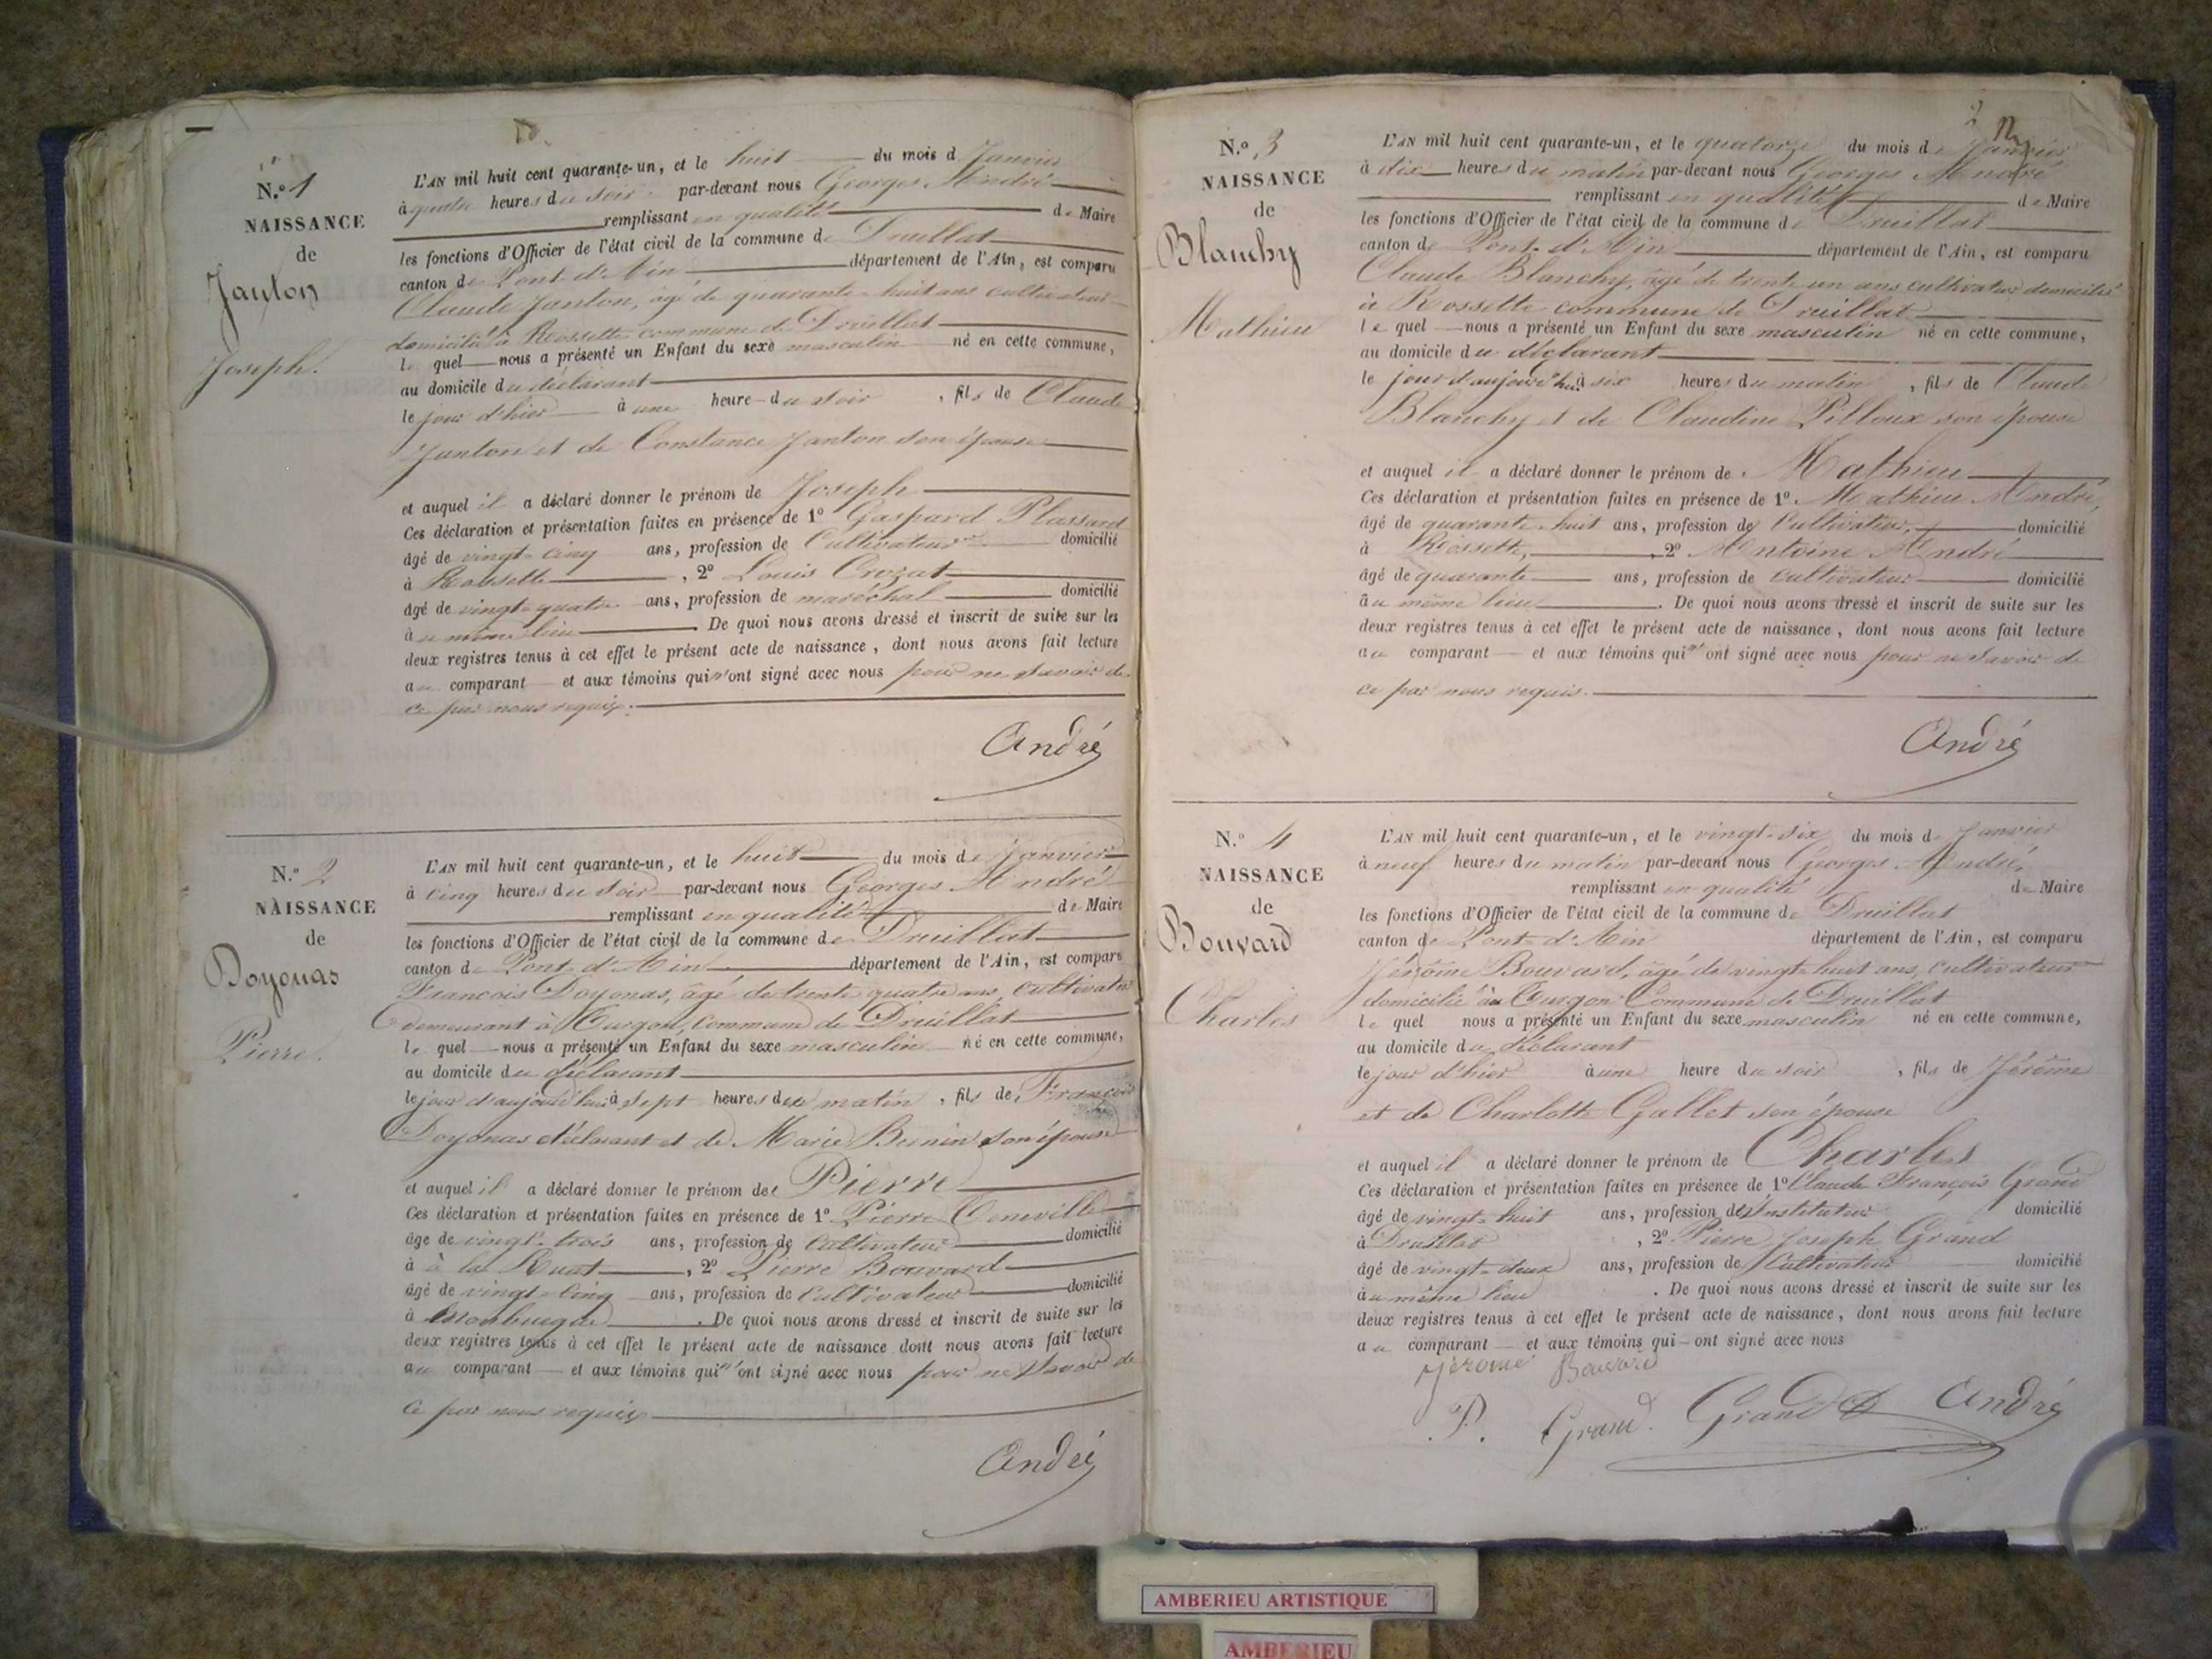 N.o 1
NAISSANCE
de
Janton
Joseph.
L'AN mil huit cent quarante-un, et le huit du mois d Janvier
à quatre heures du soir par-devant nous Georges André
remplissant en qualité de Maire
les fonctions d'Officier de l'état civil de la commune de Druillat
canton de Pont-d'Ain département de l'Ain, est comparu
Claude Janton, âgé de quarante-huit ans cultivateur
domicilié à Rossette commune de Druillat
le quel nous a présenté un Enfant du sexe masculin né en cette commune,
au domicile du déclarant
le jour d'hier à une heure du soir, fils de Claude
Janton et de Constance Janton son épouse
et auquel il a déclaré donner le prénom de Joseph
Ces déclaration et présentation faites en présence de 1o Gaspard Plassard
âgé de vingt-cinq ans, profession de Cultivateur domicilié
à Rossette, 2o Louis Crozat
âgé de vingt-quatre ans, profession de maréchal domicilié
au même lieu. De quoi nous avons dressé et inscrit de suite sur les
deux registres tenus à cet effet le présent acte de naissance, dont nous avons fait lecture
au comparant et aux témoins qui n'ont signé avec nous pour ne savoir de
ce par nous requis.
André
N.o 2
NAISSANCE
de
Doyonas
Pierre.
L'AN mil huit cent quarante-un, et le huit du mois de Janvier
à cinq heures du soir par-devant nous Georges André
remplissant en qualité de Maire
les fonctions d'Officier de l'état civil de la commune de Druillat
canton de Pont-d'Ain département de l'Ain, est comparu
François Doyonas, âgé de trente quatre ans, cultivateur
demeurant à Turgon, commune de Druillat
le quel nous a présenté un Enfant du sexe masculin né en cette commune,
au domicile du déclarant
le jour d'aujourd'hui à sept heures du matin, fils de François
Doyonas déclarant et de Marie son épouse
et auquel il a déclaré donner le prénom de Pierre
Ces déclaration et présentation faites en présence de 1o Pierre
âgé de vingt-trois ans, profession de Cultivateur domicilié
à à la Ruat, 2o Pierre Bouvard
âgé de vingt-cinq ans, profession de Cultivateur domicilié
à. De quoi nous avons dressé et inscrit de suite sur les
deux registres tenus à cet effet le présent acte de naissance dont nous avons fait lecture
au comparant et aux témoins qui n'ont signé avec nous pour ne savoir de
ce par nous requis
André
N.o 3
NAISSANCE
de
Blanchy
Mathieu
L'AN mil huit cent quarante-un, et le quatorze du mois de Janvier
à dix heures du matin par-devant nous Georges André
remplissant en qualité de Maire
les fonctions d'Officier de l'état civil de la commune de Druillat
canton de Pont-d'Ain département de l'Ain, est comparu
Claude Blanchy, âgé de trente un ans cultivateur domicilié
à Rossette commune de Druillat
le quel nous a présenté un Enfant du sexe masculin né en cette commune,
au domicile du déclarant
le jour d'aujourd'hui à six heures du matin, fils de Claude
Blanchy et de Claudine Pilloux son épouse
et auquel il a déclaré donner le prénom de Mathieu
Ces déclaration et présentation faites en présence de 1o Mathieu André,
âgé de quarante-huit ans, profession de Cultivateur, domicilié
à Rossette, 2o Antoine André
âgé de quarante ans, profession de Cultivateur domicilié
au même lieu. De quoi nous avons dressé et inscrit de suite sur les
deux registres tenus à cet effet le présent acte de naissance, dont nous avons fait lecture
au comparant et aux témoins qui n'ont signé avec nous pour ne savoir de
ce par nous requis.
André
N.o 4
NAISSANCE
de
Bouvard
Charles
L'AN mil huit cent quarante-un, et le vingt-six du mois de Janvier
à neuf heures du matin par-devant nous Georges André,
remplissant en qualité de Maire
les fonctions d'Officier de l'état civil de la commune de Druillat
canton de Pont-d'Ain département de l'Ain, est comparu
Jérôme Bouvard, âgé de vingt-huit ans, cultivateur
domicilié à Turgon Commune de Druillat
le quel nous a présenté un Enfant du sexe masculin né en cette commune,
au domicile du déclarant
le jour d'hier à une heure du soir, fils de Jérôme
et de Charlotte Gallet son épouse
et auquel il a déclaré donner le prénom de Charles
Ces déclaration et présentation faites en présence de 1o Claude François Grand
âgé de vingt-huit ans, profession d'Instituteur domicilié
à Druillat, 2o Pierre Joseph Grand
âgé de vingt-deux ans, profession de Cultivateur domicilié
au même lieu. De quoi nous avons dressé et inscrit de suite sur les
deux registres tenus à cet effet le présent acte de naissance, dont nous avons fait lecture
au comparant et aux témoins qui ont signé avec nous
Jérome Bouvard
P. Grand. Grand André
AMBERIEU ARTISTIQUE
AMBERIEU